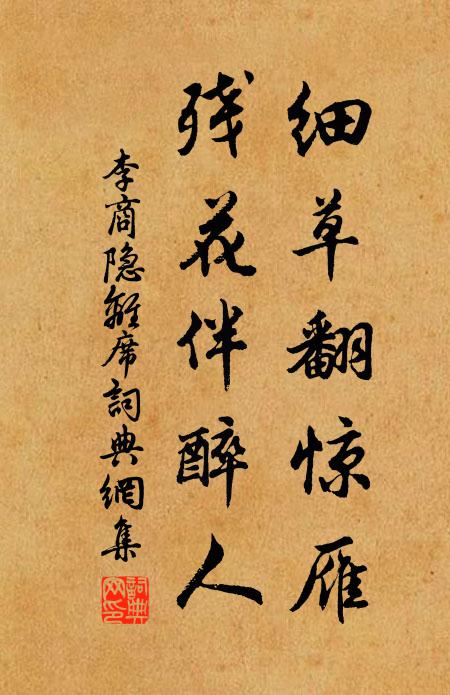 细草翻惊雁
残花伴醉人
李商隐離席詞典網集
詞典网印